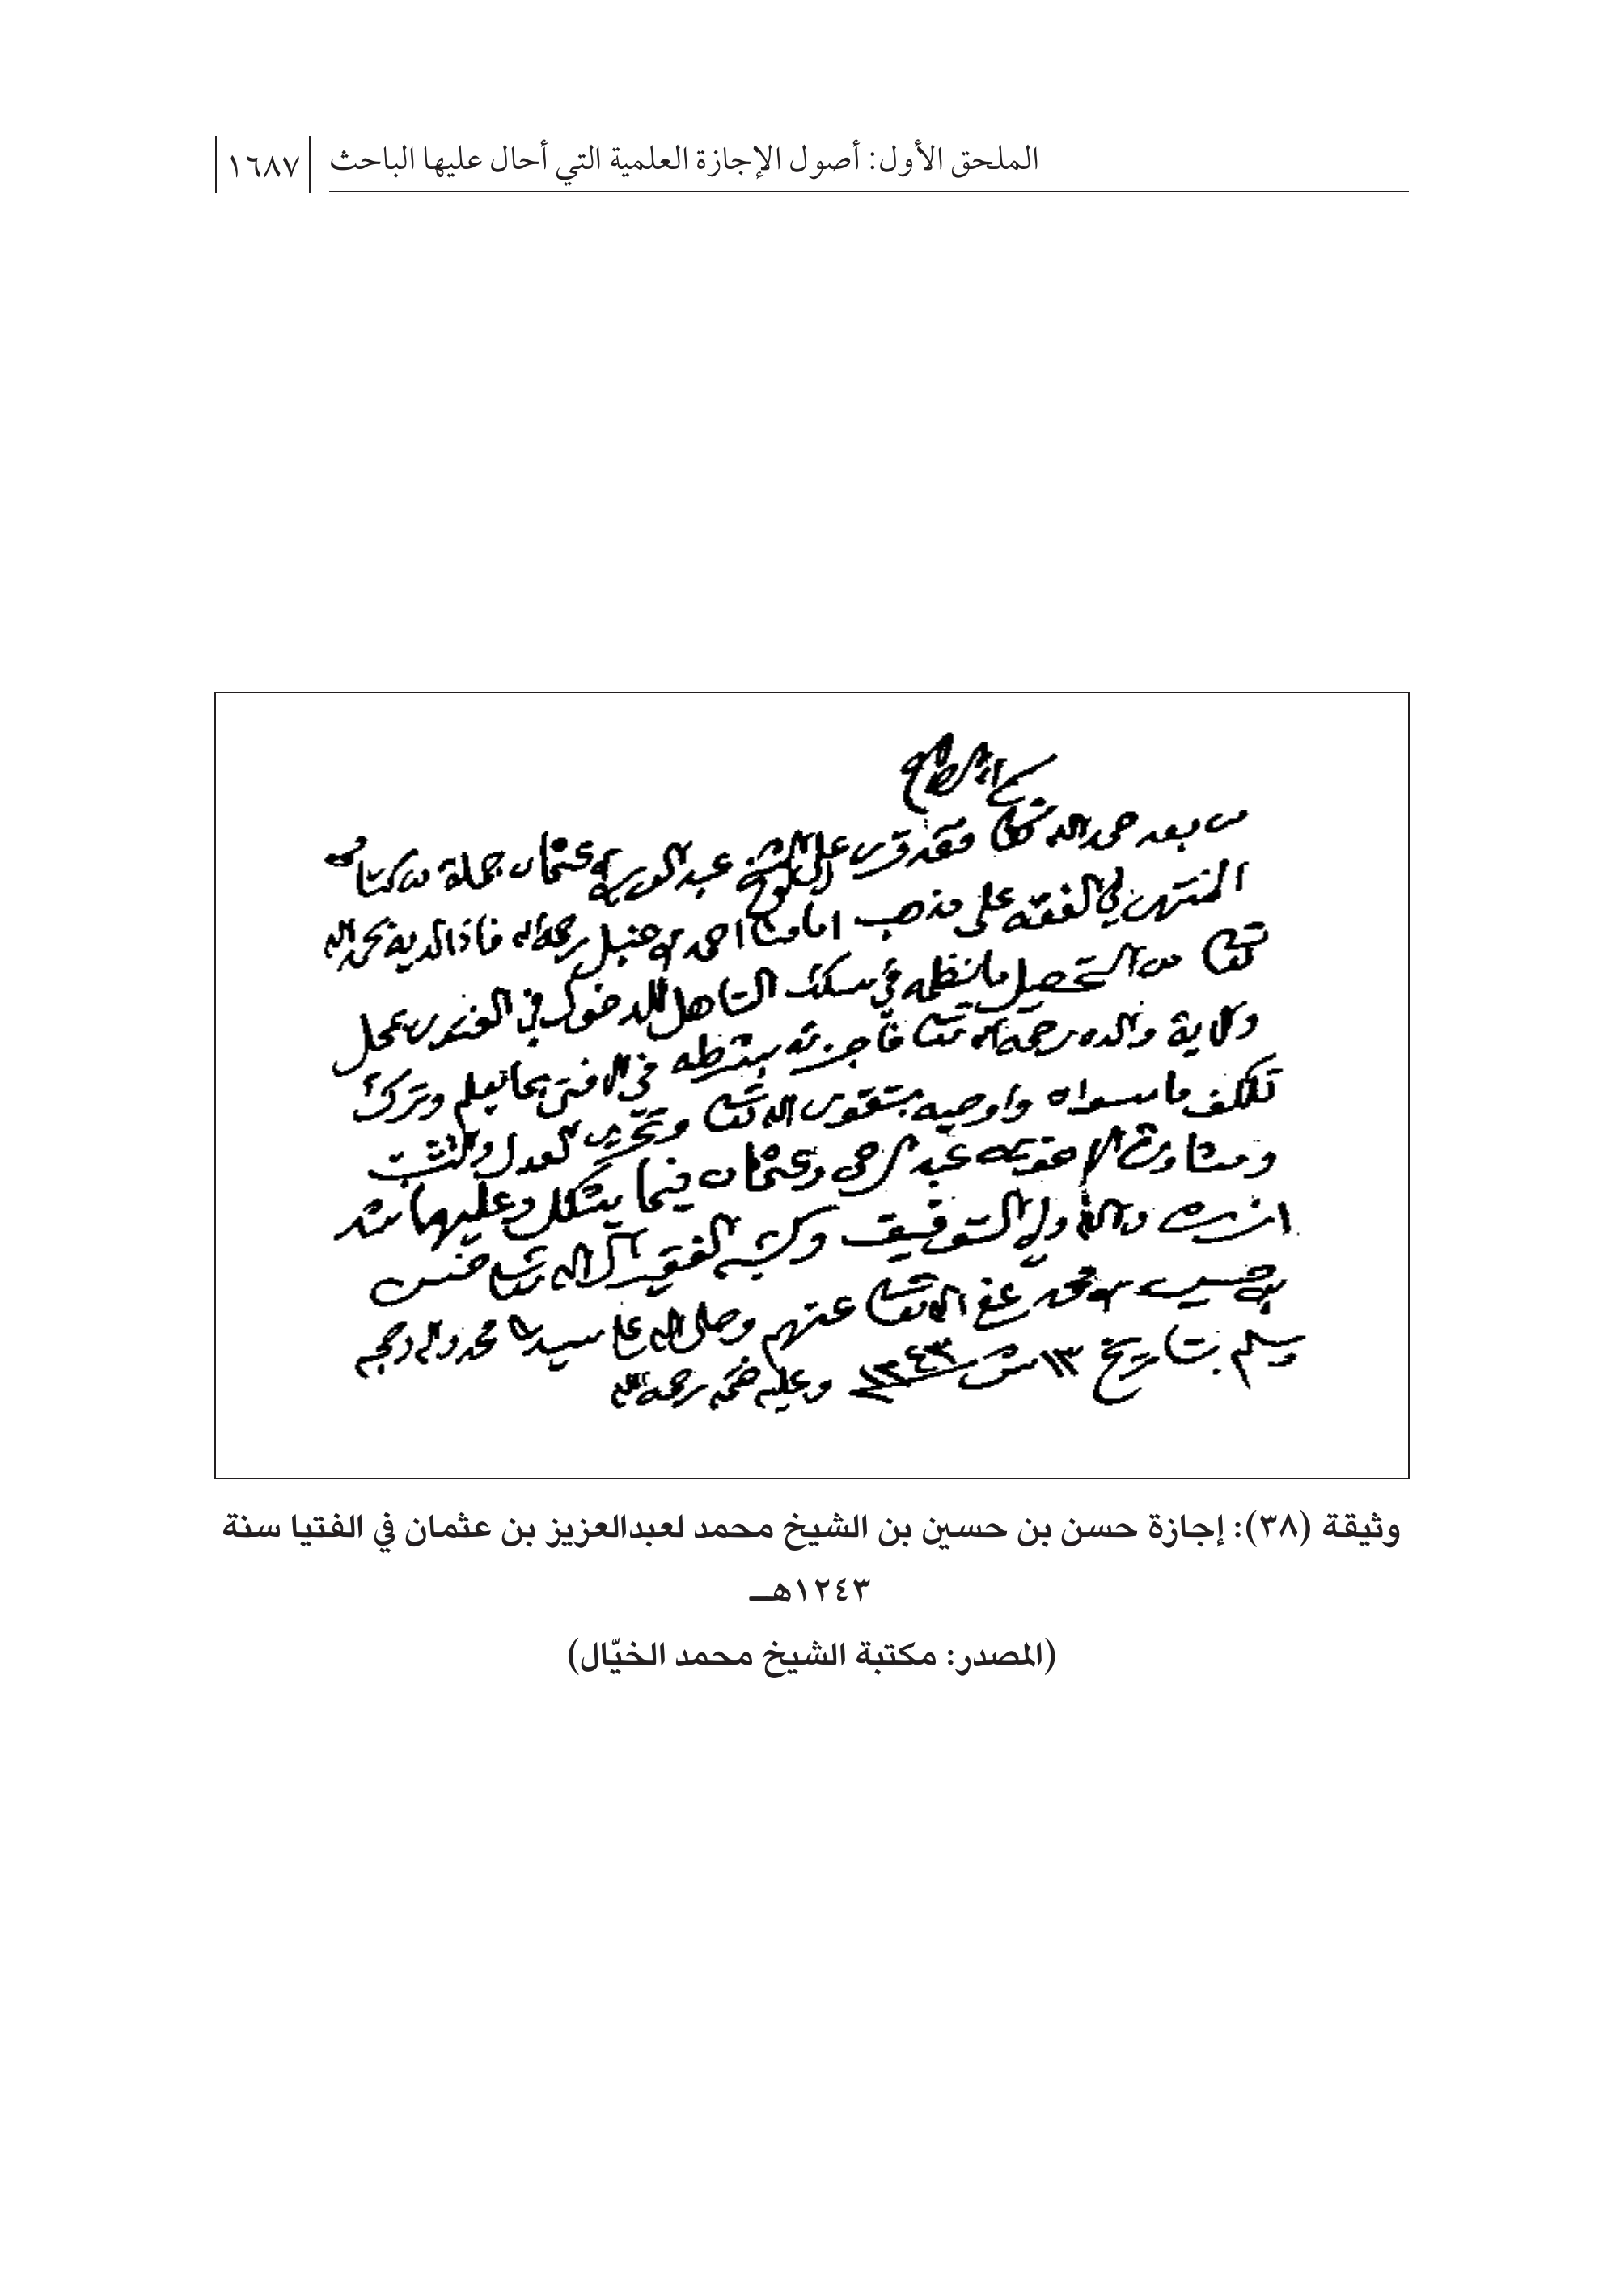 الملحق الأول: أصول الإجازة العلمية التي أحال عليها الباحث
١٦٨٧
من بعد حمد الله تعالى فقد قرى علي الشيخ عبد العزيز بن عثمان جملة من كتاب
المنتهى في الفقه على مذهب امامنا احمد بن حنبل رحمه الله فاذا لديه بحمد الله
تعالى من التحصيل ما ينظمه في سلك التاهل للدخول في الفتوى بمحل
ولاية والده رحمه الله تعالى فاجزته بشرطه في الافتى بما يعلم وترك
تكلف ما سواه واوصيه بتقوى الله تعالى وتحري العدل والتثبت
ومشاورة عبد الرحمن وعثمان فيما يشكل وعليهما
والله ولي التوفيق وكتبه الفقير الى الله تعالى حسن
بن حسين بن محمد عفى الله تعالى عنهم وصلى الله على سيدنا محمد واله وصحبه
وسلم بتاريخ ١٣ ش ١٢٤٣ وعليه ختمه رحمه الله
وثيقة (٣٨): إجازة حسن بن حسين بن الشيخ محمد لعبدالعزيز بن عثمان في الفتيا سنة
١٢٤٣هـ
(المصدر: مكتبة الشيخ محمد الخيّال)